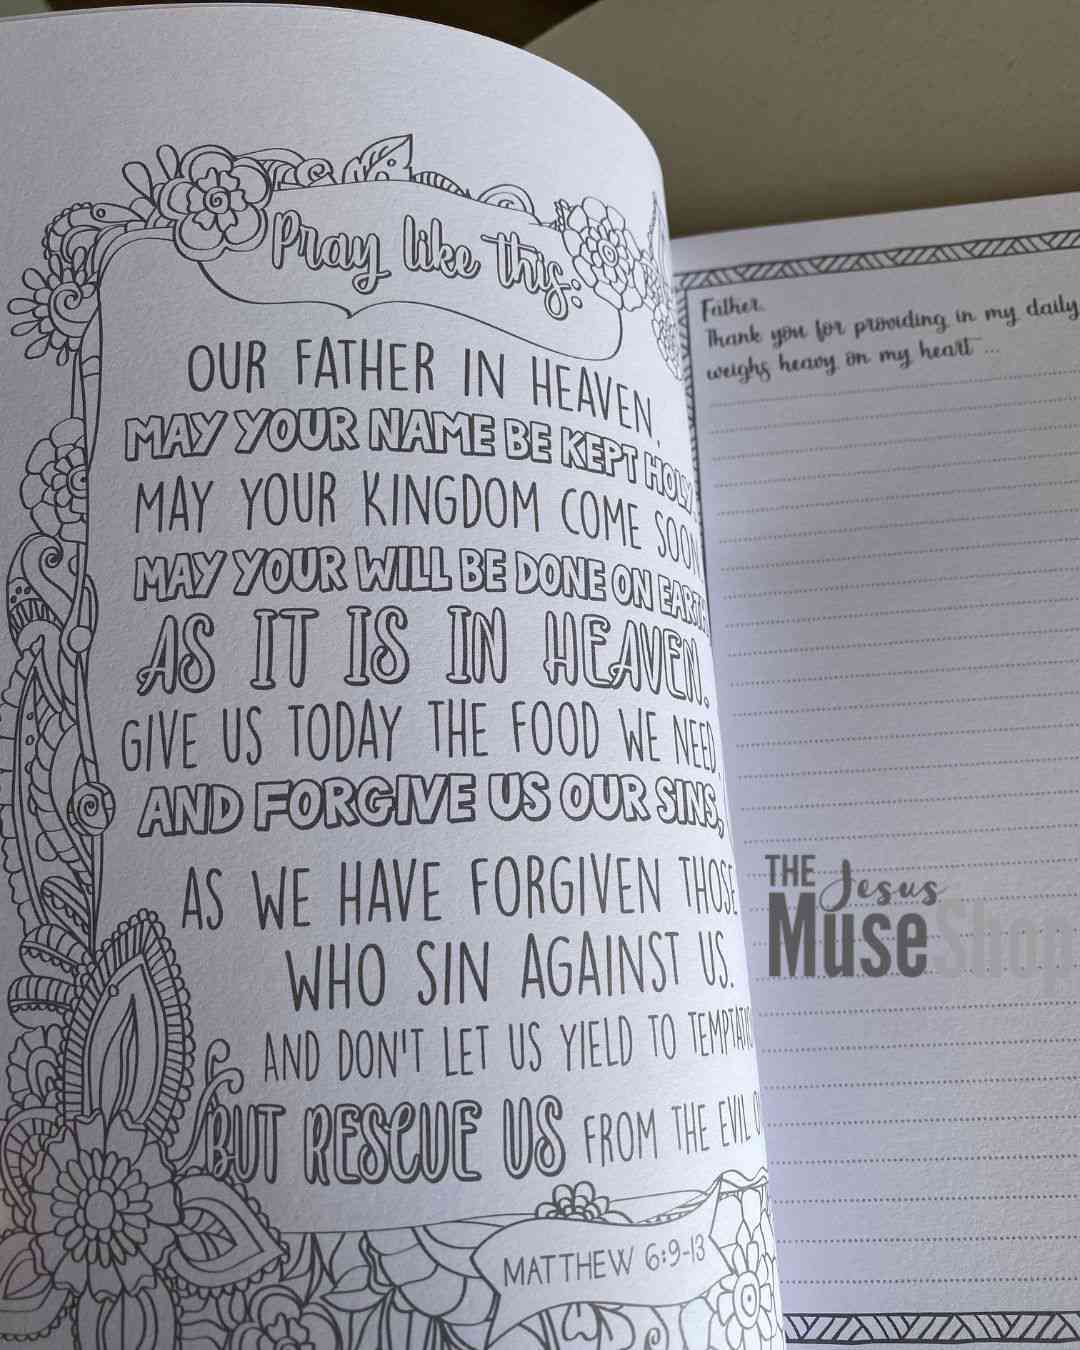 Pray like this:
OUR FATHER IN HEAVEN,
MAY YOUR NAME BE KEPT HOLY.
MAY YOUR KINGDOM COME SOON.
MAY YOUR WILL BE DONE ON EARTH
AS IT IS IN HEAVEN.
GIVE US TODAY THE FOOD WE NEED,
AND FORGIVE US OUR SINS,
AS WE HAVE FORGIVEN THOSE
WHO SIN AGAINST US.
AND DON'T LET US YIELD TO
BUT RESCUE US FROM THE EVIL
MATTHEW 6:9-13
Father.
Thank you for providing in my daily
weighs heavy on my heart ...
THE Jesus
Muse Shop